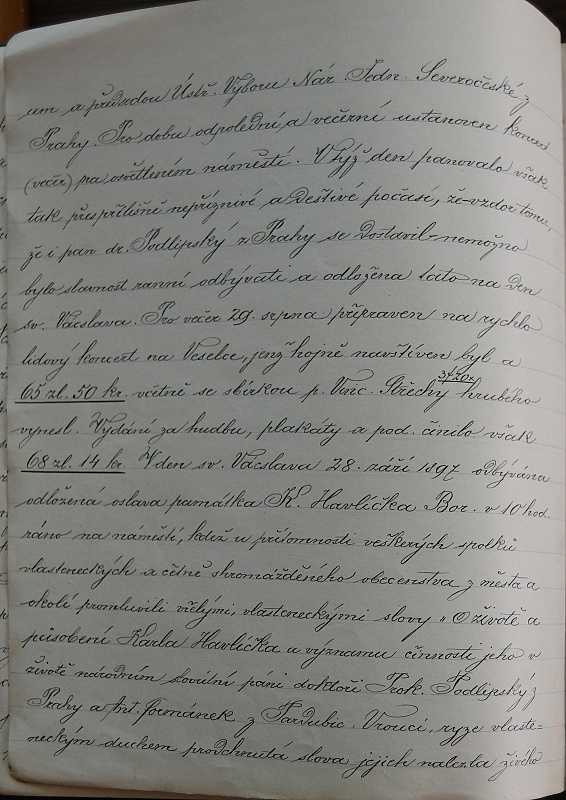 um a předsedou Ústř. Výboru Nár. Jedn. Severočeské z
Prahy. Pro dobu odpolední a večerní ustanoven koncert
(večer) na osvětleném náměstí. V týž den panovalo však
tak přespříliš nepříznivé a deštivé počasí, že vzdor tomu,
že i pan dr. Podlipský z Prahy se dostavil nemožno
bylo slavnost ranní odbývati a odložena tato na den
sv. Václava. Pro večer 29. srpna připraven na rychlo
lidový koncert na Veselce, jenž hojně navštíven byl a
65 zl. 50 kr. včetně se sbírkou p. Vinc. Střechy hrubého
vynesl. Vydání za hudbu, plakáty a pod. činilo však
68 zl. 14 kr. V den sv. Václava 28. září 1897 odbývána
odložená oslava památka K. Havlíčka Bor. v 10 hod.
ráno na náměstí, kdež u přítomnosti veškerých spolků
vlasteneckých a četně shromážděného obecenstva z města a
okolí promluvili vřelými, vlasteneckými slovy „O životě a
působení Karla Havlíčka a významu činnosti jeho v
životě národním slovutní páni doktoři Prok. Podlipský z
Prahy a Ant. Formánek z Pardubic. Vroucí, ryze vlaste=
neckým duchem prodchnutá slova jejich nalezla živého